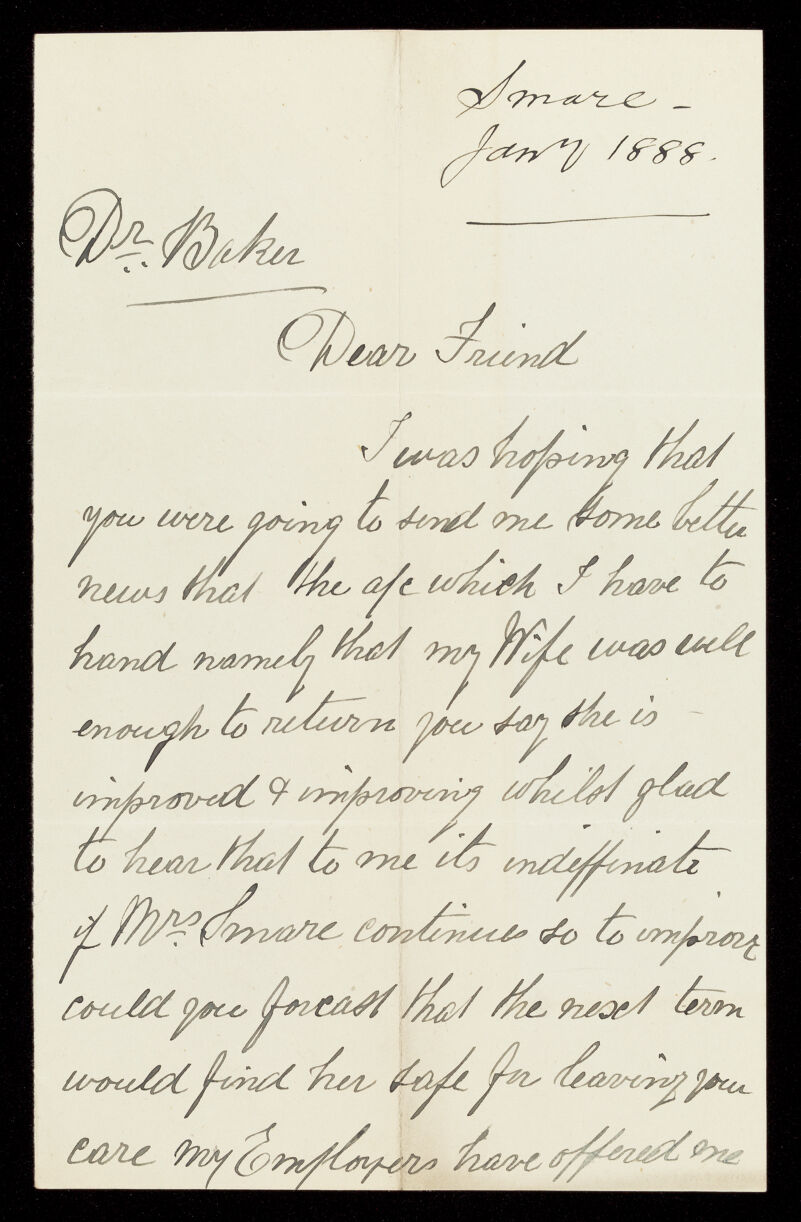 Smare -
Jany 1888.
Dr. Baker
Dear Friend
I was hoping that
you were going to send me some better
news that the a/c which I have to
hand namely that my Wife was well
enough to return you say she is -
improved & improving whilst glad
to hear that to me its indeffinate
if Mrs. Smare continues so to improve
could you forcast that the next term
would find her safe for leaving your
care my Employers have offered me